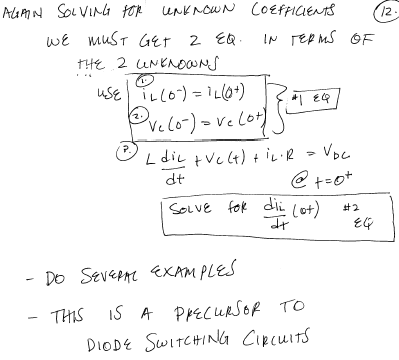 AGAIN SOLVING FOR UNKNOWN COEFFICIENTS 12.
WE MUST GET 2 EQ. IN TERMS OF
THE 2 UNKNOWNS
USE 1. iL(0-) = iL(0+)
2. Vc(0-) = Vc(0+) } #1 EQ
3. L diL/dt + Vc(t) + iL·R = VDC
@ t=0+
SOLVE FOR diL/dt (0+) #2 EQ
- DO SEVERAL EXAMPLES
- THIS IS A PRECURSOR TO
DIODE SWITCHING CIRCUITS